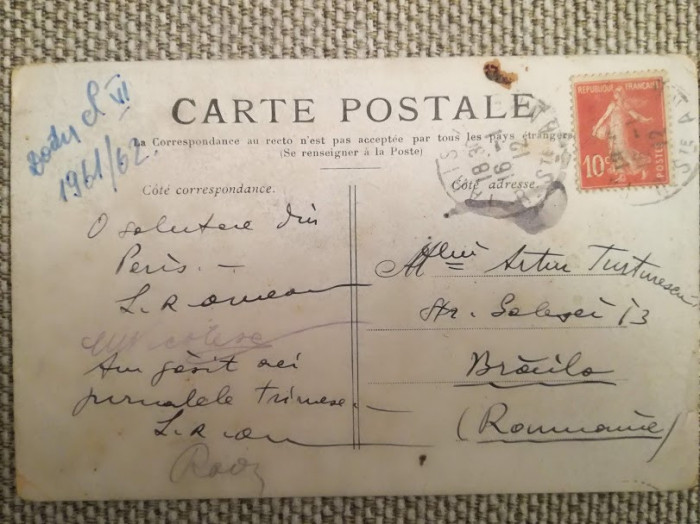 CARTE POSTALE
La Correspondance au recto n'est pas acceptée par tous les pays étrangers
(Se renseigner à la Poste)
Côté correspondance.
Côté adresse.
1961/62.
VI
REPUBLIQUE FRANÇAISE
10c
POSTES
18 30
O salutare din
Paris. —
Am găsit aci
jurnalele trimese. —
Artur Turturescu
Str. Galați 13
Brăila
(Roumanie)